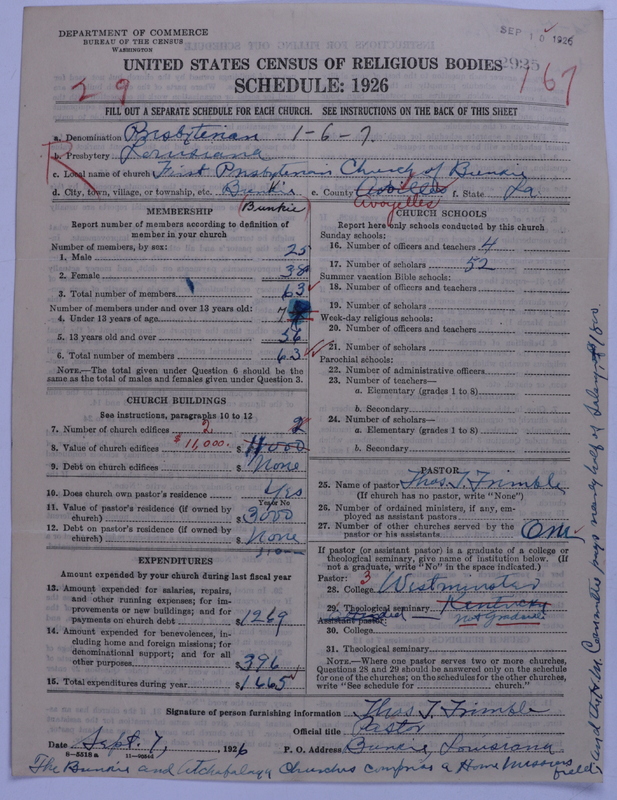 DEPARTMENT OF COMMERCE
BUREAU OF THE CENSUS
WASHINGTON
SEP 10 1926
UNITED STATES CENSUS OF RELIGIOUS BODIES
2925
SCHEDULE: 1926
29
167
FILL OUT A SEPARATE SCHEDULE FOR EACH CHURCH. SEE INSTRUCTIONS ON THE BACK OF THIS SHEET
a. Denomination Presbyterian 1-6-7.
b. Presbytery Louisiana
c. Local name of church First Presbyterian Church of Bunkie
d. City, town, village, or township, etc. Bunkie e. County Avoyelles f. State La.
(Bunkie) Avoyelles
MEMBERSHIP
Report number of members according to definition of member in your church
Number of members, by sex:
1. Male 25
2. Female 38
3. Total number of members 63
Number of members under and over 13 years old:
4. Under 13 years of age 7
5. 13 years old and over 56
6. Total number of members 63
NOTE.—The total given under Question 6 should be same as the total of males and females given under Question 3.
CHURCH BUILDINGS
See instructions, paragraphs 10 to 12
7. Number of church edifices 2 2
8. Value of church edifices $11,000. $ 11000
9. Debt on church edifices $ None
10. Does church own pastor's residence Yes
Yes or No
11. Value of pastor's residence (if owned by church) $ 3000
12. Debt on pastor's residence (if owned by church) $ None
EXPENDITURES
Amount expended by your church during last fiscal year
13. Amount expended for salaries, repairs, and other running expenses; for improvements or new buildings; and for payments on church debt $ 1269
14. Amount expended for benevolences, including home and foreign missions; for denominational support; and for all other purposes $ 396
15. Total expenditures during year $ 1665
CHURCH SCHOOLS
Report here only schools conducted by this church
Sunday schools:
16. Number of officers and teachers 4
17. Number of scholars 52
Summer vacation Bible schools:
18. Number of officers and teachers
19. Number of scholars
Week-day religious schools:
20. Number of officers and teachers
21. Number of scholars
Parochial schools:
22. Number of administrative officers
23. Number of teachers—
a. Elementary (grades 1 to 8)
b. Secondary
24. Number of scholars—
a. Elementary (grades 1 to 8)
b. Secondary
PASTOR
25. Name of pastor Thos. T. Trimble
(If church has no pastor, write "None")
26. Number of ordained ministers, if any, employed as assistant pastors
27. Number of other churches served by the pastor or his assistants One
If pastor (or assistant pastor) is a graduate of a college or theological seminary, give name of institution below. (If not a graduate, write "No" in the space indicated.)
Pastor: 3
28. College Westminster
29. Theological seminary Kentucky
Assistant pastor: not graduate
30. College
31. Theological seminary
NOTE.—Where one pastor serves two or more churches, Questions 28 and 29 should be answered only on the schedule for one of the churches; on the schedules for the other churches, write "See schedule for ........ church."
Signature of person furnishing information Thos. T. Trimble
Official title Pastor
Date Sept. 7, 1926 P. O. Address Bunkie, Louisiana
The Bunkie and Atchafalaya Churches comprise a Home Missions field,
and the H.M. Committee pays nearly half of Salary